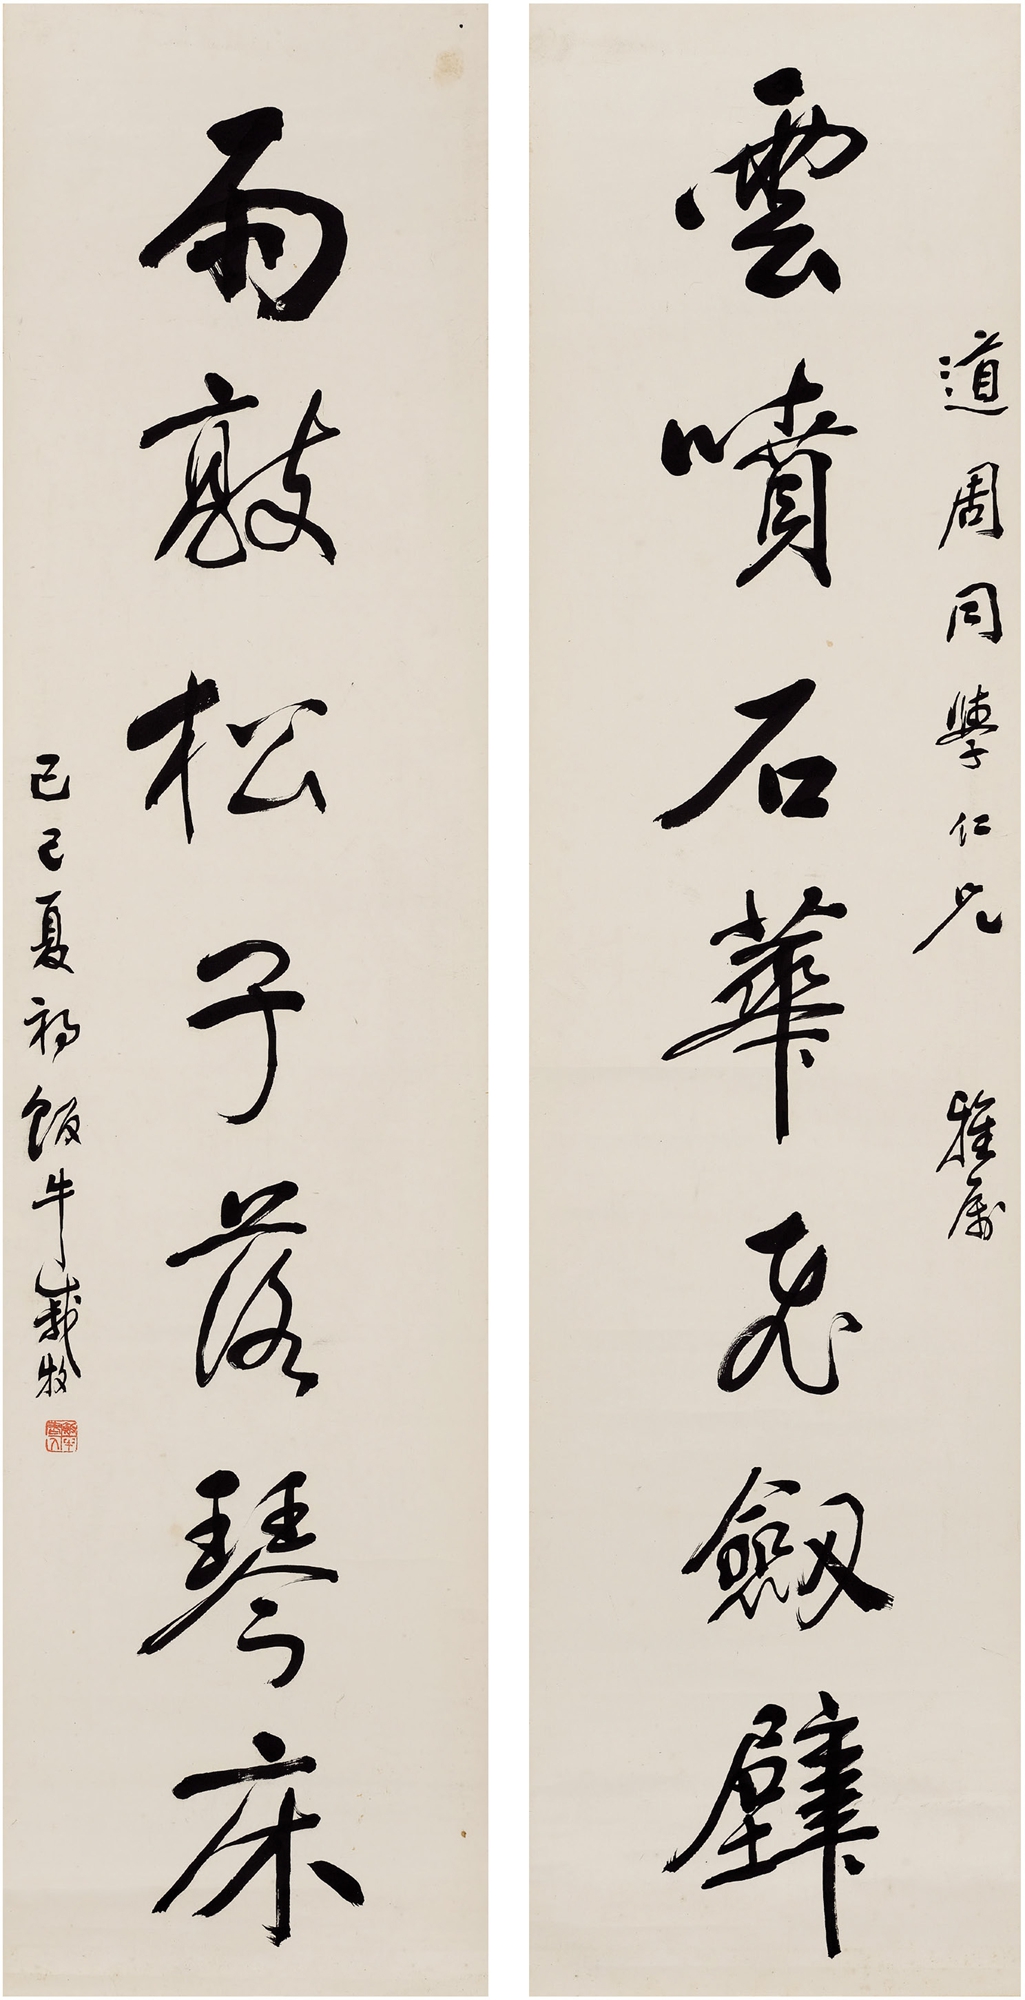 道周同學仁兄 雅屬
雲噴石華飛劒壁
雨敲松子落琴床
己巳夏初飯牛戴牧